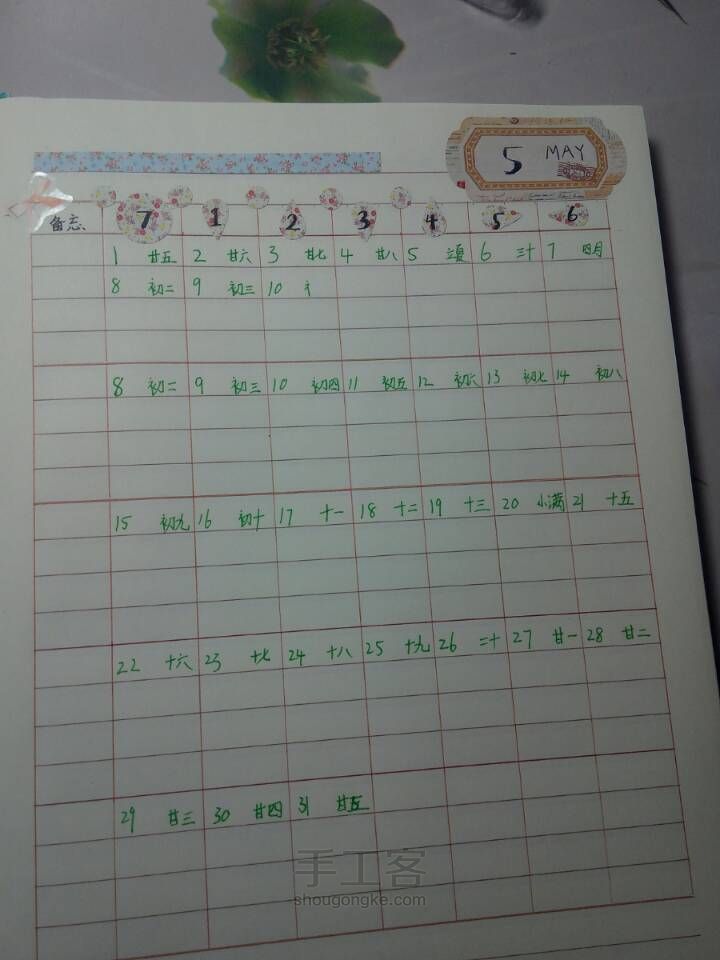 5 MAY
备忘 7 1 2 3 4 5 6
1 廿五 2 廿六 3 廿七 4 廿八 5 立夏 6 三十 7 四月
8 初二 9 初三 10
8 初二 9 初三 10 初四 11 初五 12 初六 13 初七 14 初八
15 初九 16 初十 17 十一 18 十二 19 十三 20 小满 21 十五
22 十六 23 十七 24 十八 25 十九 26 二十 27 廿一 28 廿二
29 廿三 30 廿四 31 廿五
手工客
shougongke.com